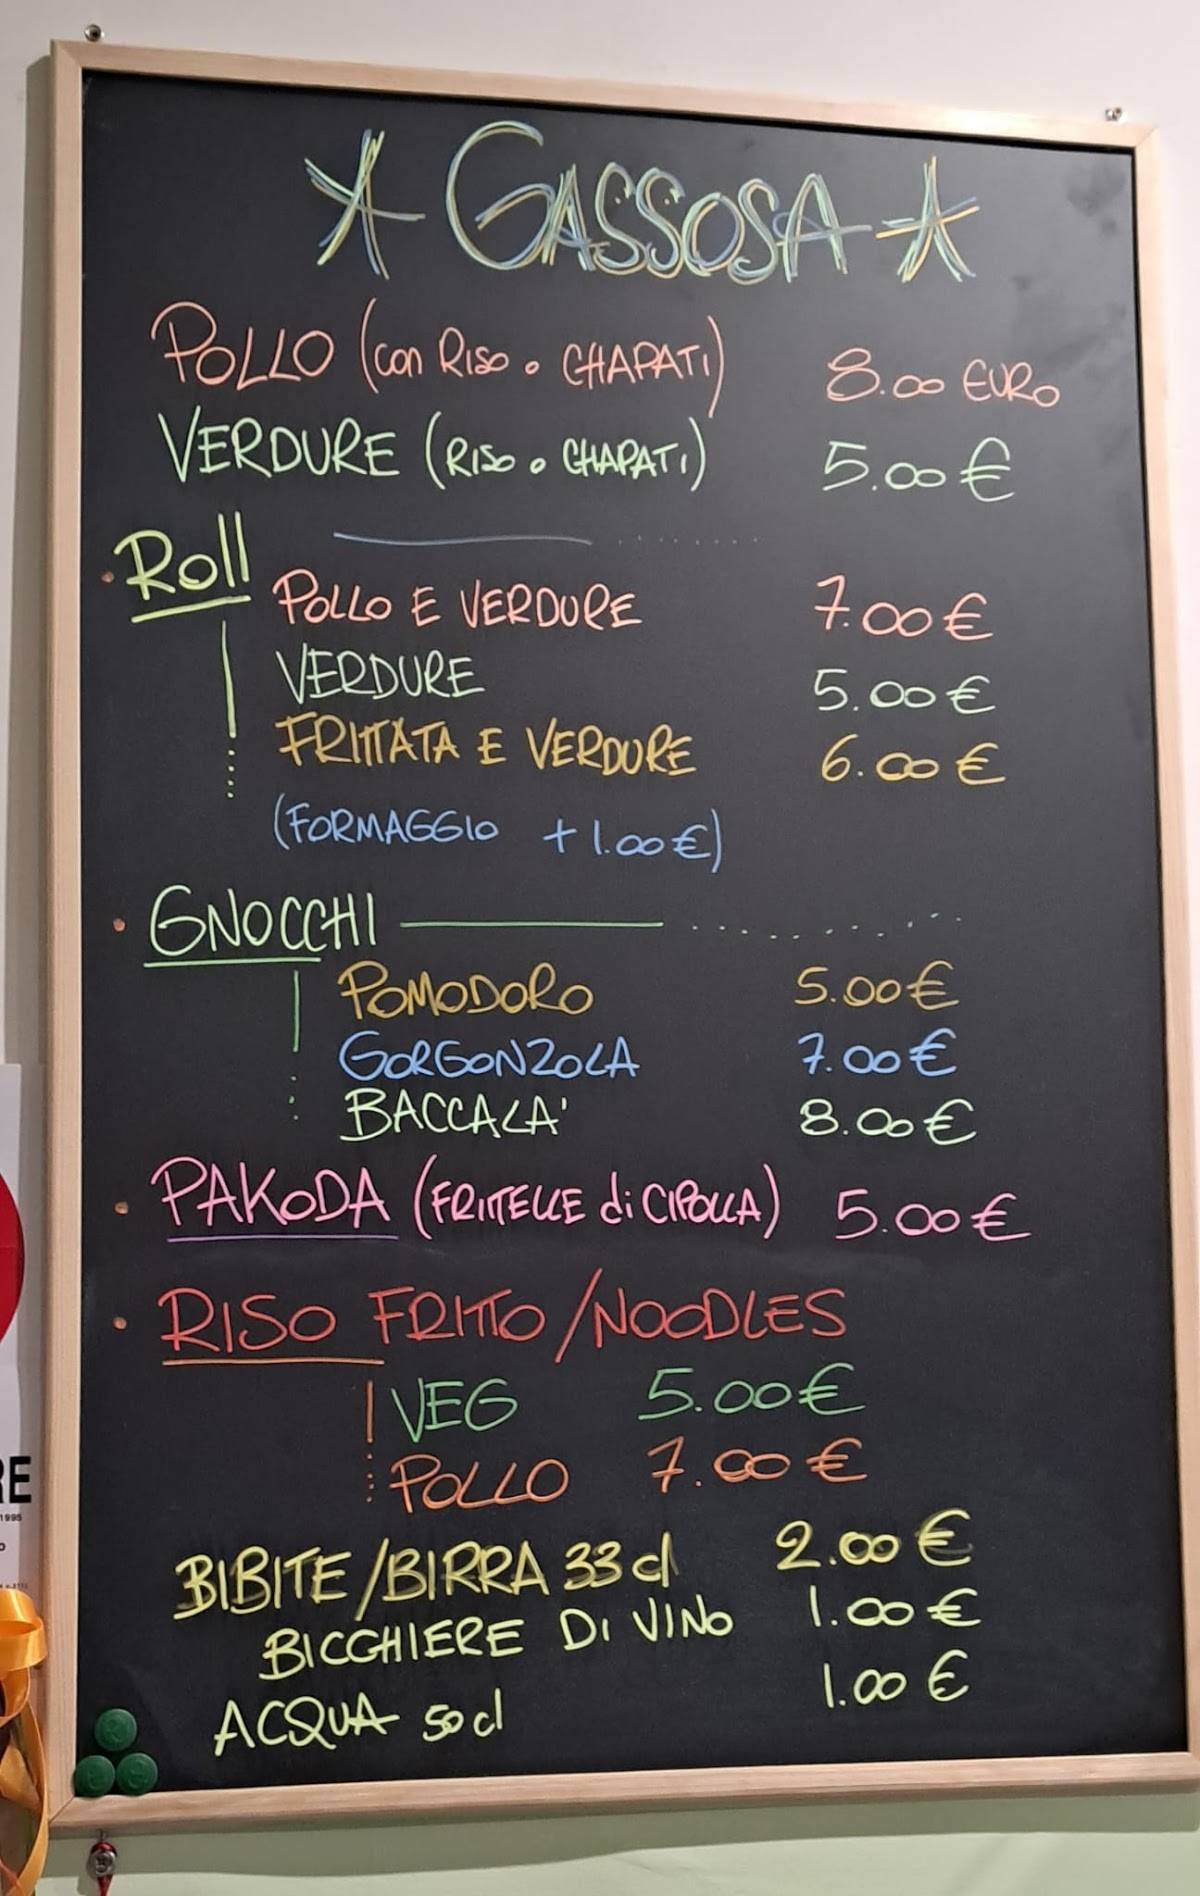 GASSOSA
POLLO (con RISO o CHAPATI) 8.00 EURO
VERDURE (RISO o CHAPATI) 5.00 €
Roll
POLLO E VERDURE 7.00 €
VERDURE 5.00 €
FRITTATA E VERDURE 6.00 €
(FORMAGGIO + 1.00 €)
GNOCCHI
POMODORO 5.00 €
GORGONZOLA 7.00 €
BACCALA' 8.00 €
PAKODA (FRITTELLE di CIPOLLA) 5.00 €
RISO FRITTO/NOODLES
VEG 5.00 €
POLLO 7.00 €
BIBITE/BIRRA 33 cl 2.00 €
BICCHIERE DI VINO 1.00 €
ACQUA 50 cl 1.00 €
RE
1995